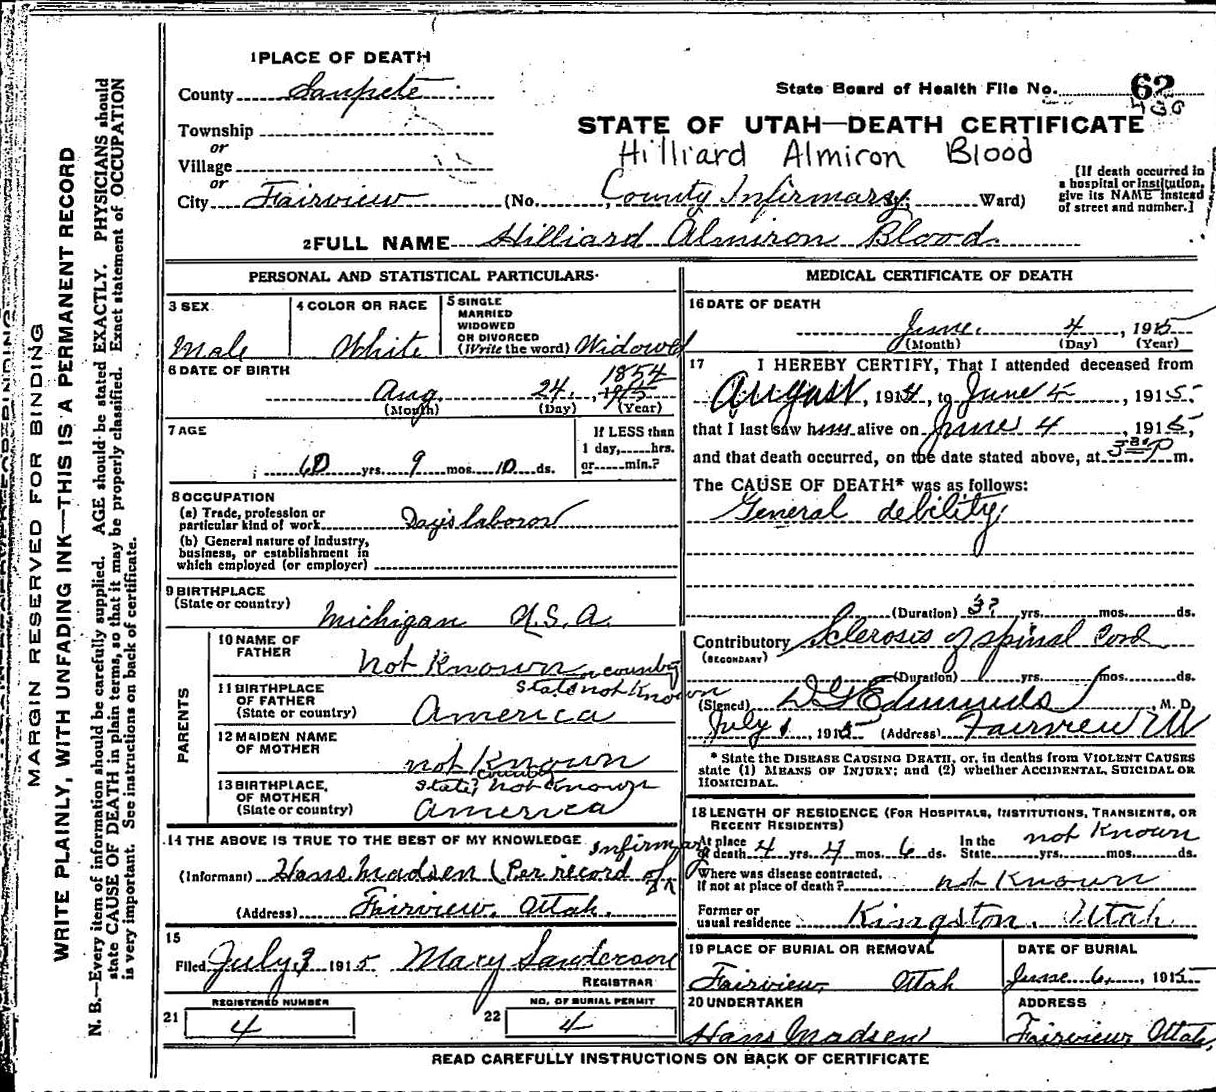 MARGIN RESERVED FOR BINDING
WRITE PLAINLY, WITH UNFADING INK—THIS IS A PERMANENT RECORD
N. B.—Every item of information should be carefully supplied. AGE should be stated EXACTLY. PHYSICIANS should
state CAUSE OF DEATH in plain terms, so that it may be properly classified. Exact statement of OCCUPATION
is very important. See instructions on back of certificate.
1 PLACE OF DEATH
County Sanpete
Township
or
Village
or
City Fairview
State Board of Health File No. 62
430
STATE OF UTAH—DEATH CERTIFICATE
Hilliard Almiron Blood
(No. County Infirmary St. Ward)
[If death occurred in
a hospital or institution,
give its NAME instead
of street and number.]
2 FULL NAME Hilliard Almiron Blood
PERSONAL AND STATISTICAL PARTICULARS
3 SEX
Male
4 COLOR OR RACE
White
5 SINGLE
MARRIED
WIDOWED
OR DIVORCED
(Write the word) Widowed
6 DATE OF BIRTH
1854
Aug. 24, 1915
(Month) (Day) (Year)
7 AGE
60 yrs. 9 mos. 10 ds.
If LESS than
1 day, hrs.
or min.?
8 OCCUPATION
(a) Trade, profession or
particular kind of work Days laboror
(b) General nature of Industry,
business, or establishment in
which employed (or employer)
9 BIRTHPLACE
(State or country)
Michigan U.S.A.
PARENTS
10 NAME OF
FATHER
not Known
11 BIRTHPLACE
OF FATHER
(State or country)
county
State not Known
America
12 MAIDEN NAME
OF MOTHER
not Known
13 BIRTHPLACE,
OF MOTHER
(State or country)
county
State, not Known
America
14 THE ABOVE IS TRUE TO THE BEST OF MY KNOWLEDGE
(Informant) Hans Madsen (Per record of
Infirmary
(Address) Fairview, Utah.
15
Filed July 3 1915 Mary Sanderson
REGISTRAR
REGISTERED NUMBER
21 4
NO. OF BURIAL PERMIT
22 4
MEDICAL CERTIFICATE OF DEATH
16 DATE OF DEATH
June. 4, 1915
(Month) (Day) (Year)
17 I HEREBY CERTIFY, That I attended deceased from
August, 1914, to June 4, 1915,
that I last saw him alive on June 4, 1915,
and that death occurred, on the date stated above, at 3 30 P m.
The CAUSE OF DEATH* was as follows:
General debility
(Duration) 3? yrs. mos. ds.
Contributory Sclerosis of spinal Cord
(SECONDARY)
(Duration) yrs. mos. ds.
(Signed) D G Edmunds, M. D.
July 1, 1915 (Address) Fairview Ut
* State the DISEASE CAUSING DEATH, or, in deaths from VIOLENT CAUSES
state (1) MEANS OF INJURY; and (2) whether ACCIDENTAL, SUICIDAL OR
HOMICIDAL.
18 LENGTH OF RESIDENCE (FOR HOSPITALS, INSTITUTIONS, TRANSIENTS, OR
RECENT RESIDENTS)
At place
of death 4 yrs. 4 mos. 6 ds.
In the
State yrs. mos. ds.
not Known
Where was disease contracted,
If not at place of death? not Known
Former or
usual residence Kingston, Utah.
19 PLACE OF BURIAL OR REMOVAL
Fairview, Utah
DATE OF BURIAL
June 6, 1915
20 UNDERTAKER
Hans Madsen
ADDRESS
Fairview, Utah,
READ CAREFULLY INSTRUCTIONS ON BACK OF CERTIFICATE